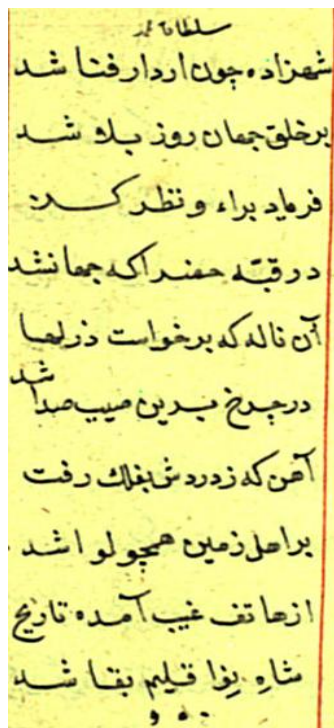 سلطان محمد
شهزاده چون از دار فنا شد
بر خلق جهان روز بلا شد
فرماید براه و نظر کن
در قبّه خضرا که جها نشد
آن ناله که برخواست ز دلها
در چرخ برین صدا شد
آهن که ز دردش بفلک رفت
بر اهل زمین همچو لوا شد
از هاتف غیب آمده تاریخ
شاهِ اقلیم بقا شد